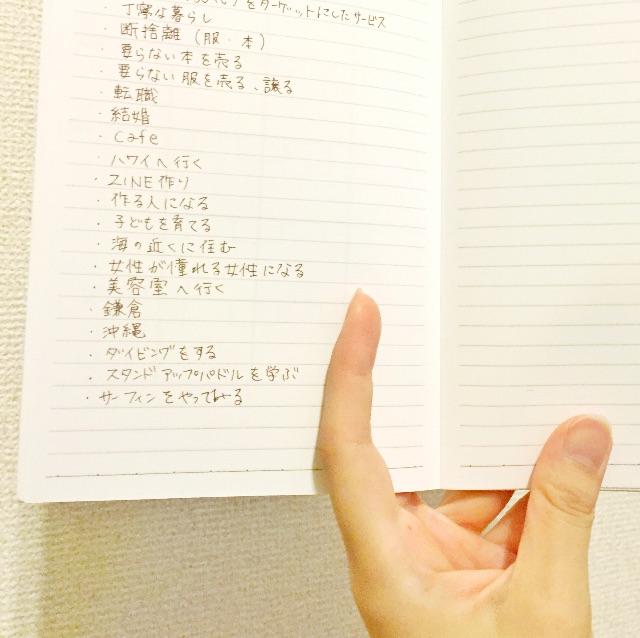 をターゲットにしたサービス
・丁寧な暮らし
・断捨離（服・本）
・要らない本を売る
・要らない服を売る、譲る
・転職
・結婚
・Cafe
・ハワイへ行く
・ZINE作り
・作る人になる
・子どもを育てる
・海の近くに住む
・女性が憧れる女性になる
・美容室へ行く
・鎌倉
・沖縄
・ダイビングをする
・スタンドアップパドルを学ぶ
・サーフィンをやってみる